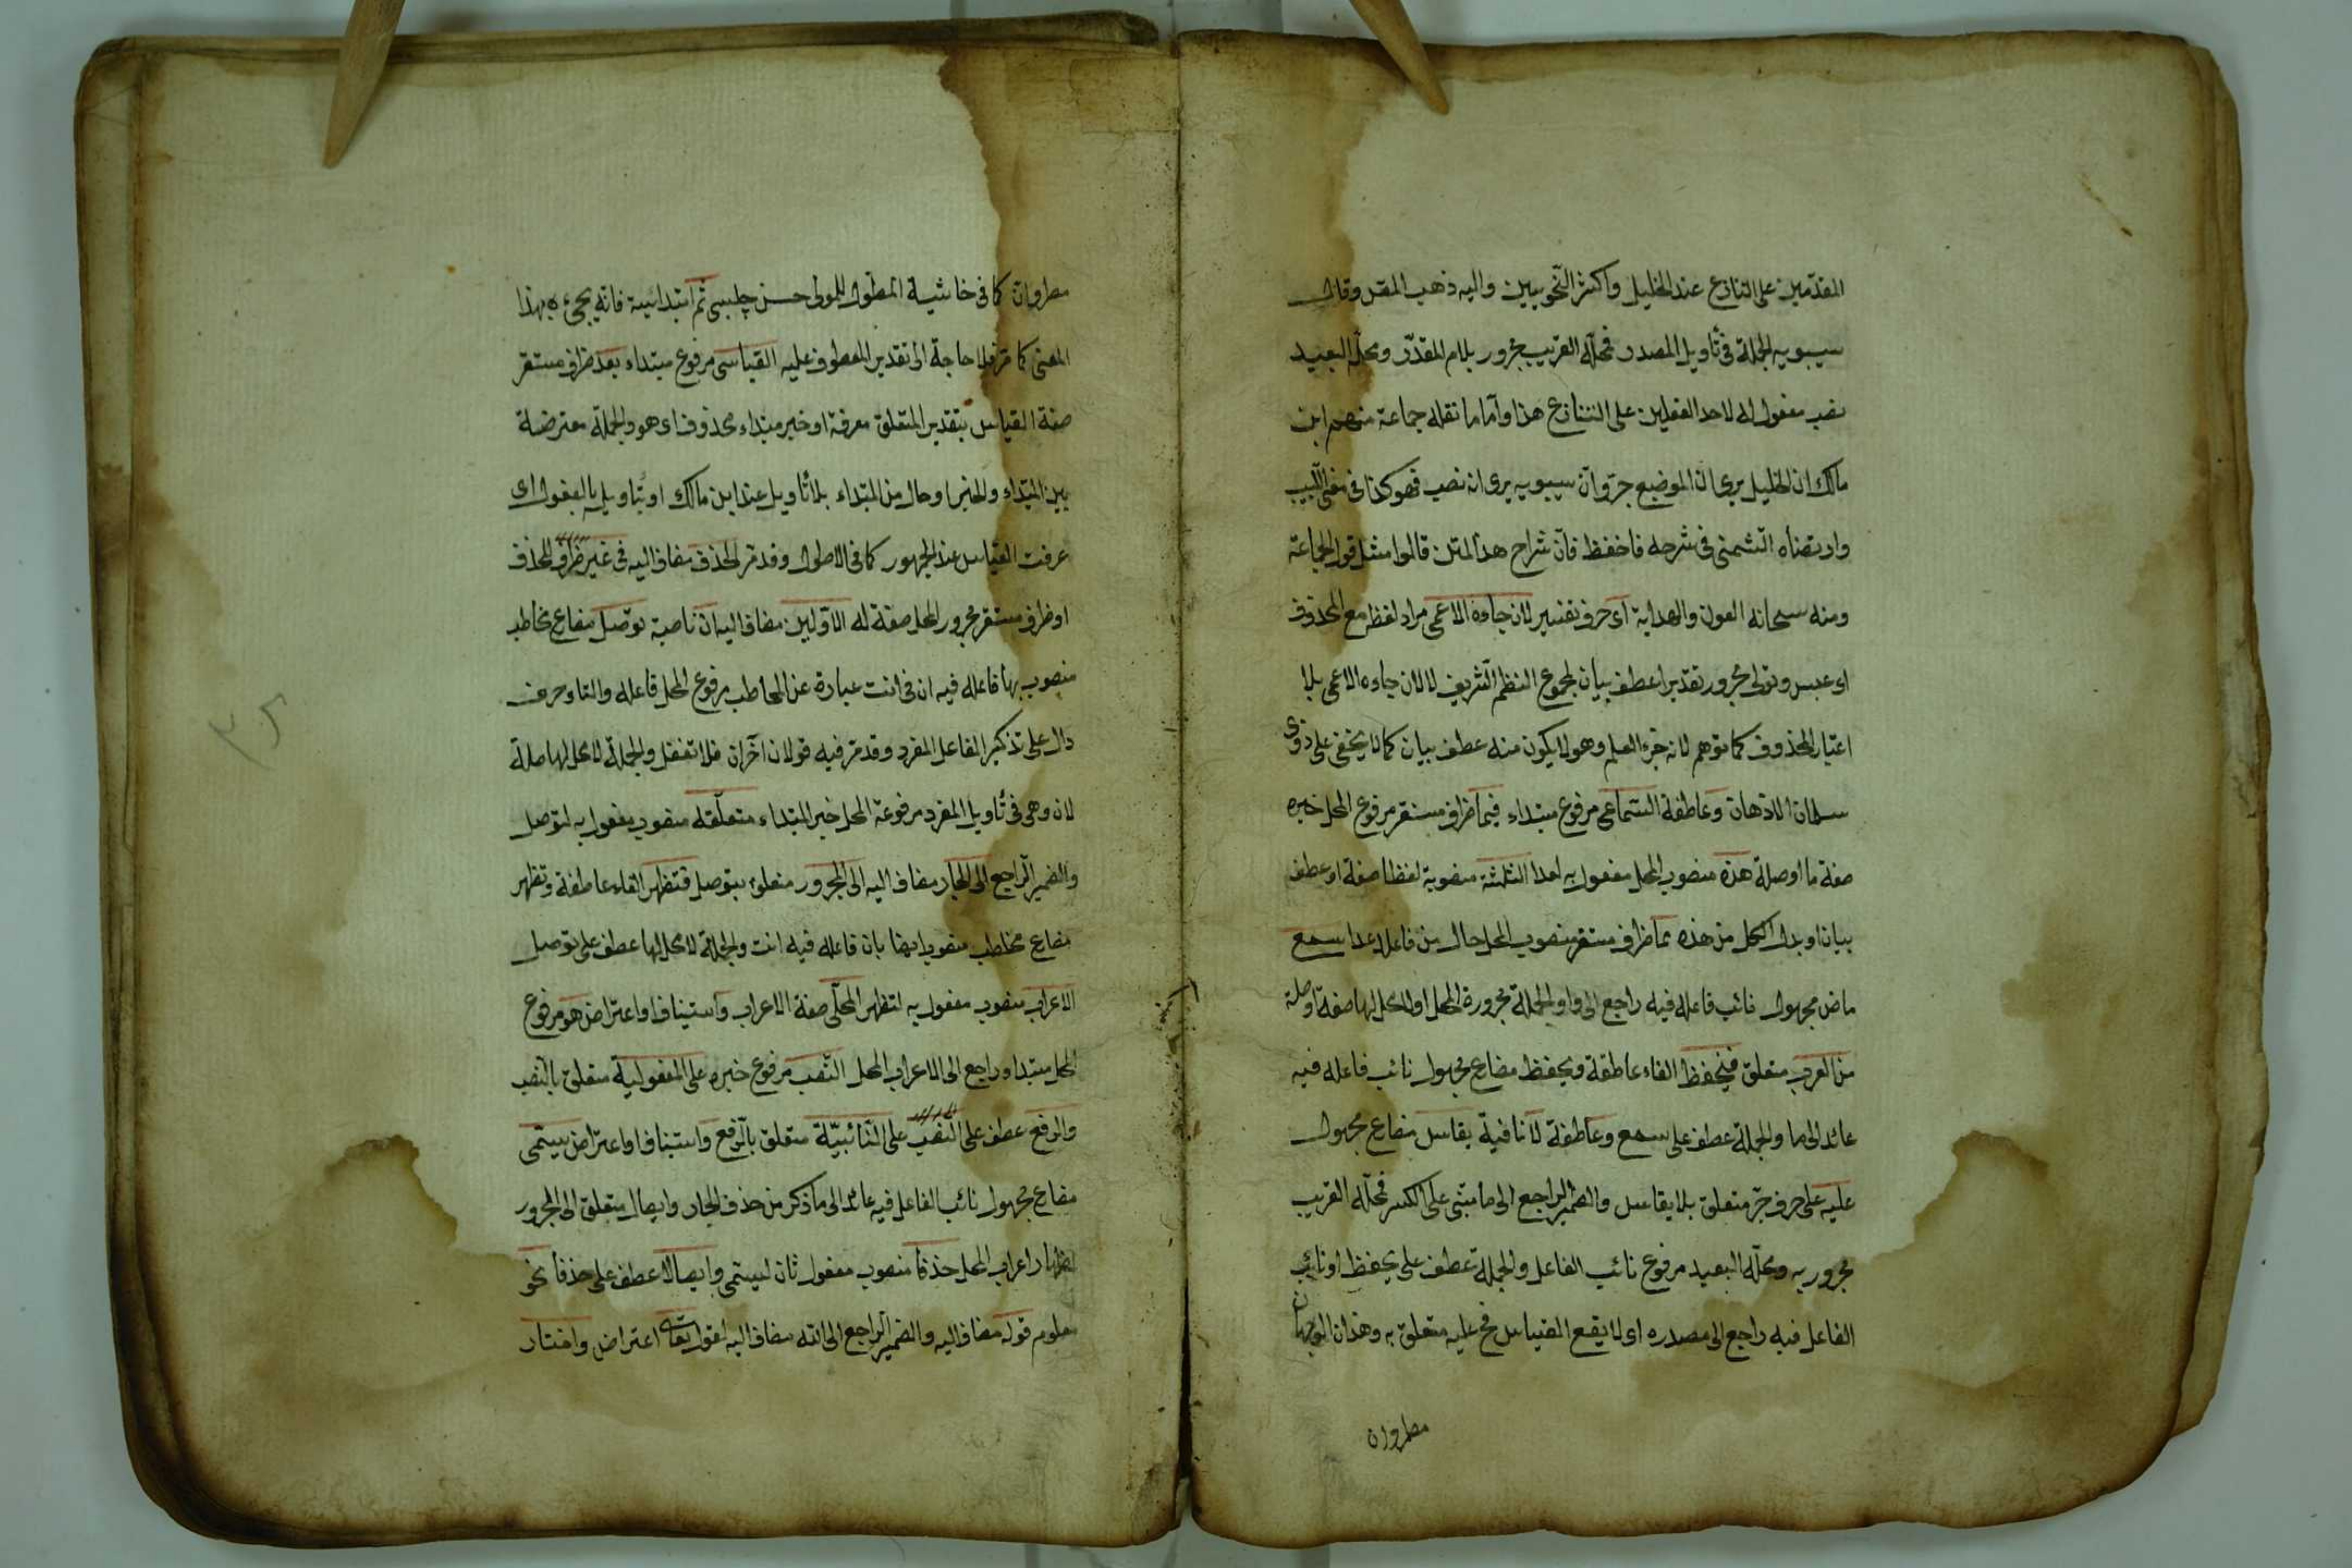 المقدمين على التنازع عند الخليل واكثر النحويين واليه ذهب المقل وقال
سيبويه الجملة فى تأويل المصدر فمحله القريب مجرور بلام المقدر ومحله البعيد
نصب مفعول له لاحد الفعلين على التنازع هذا واما ما نقله جماعة منهم ابن
مالك ان الخليل يرى ان الموضع جر وان سيبويه يرى انه نصب فهو كذا فى مغنى اللبيب
وارتضاه الشمنى فى شرحه فاحفظ فان شراح هذا المتن قالوا مثل قول الجماعة
ومنه سبحانه العون والهداية اى حرف تفسير لان جاءه الاعمى مراد لفظ مع المحذوف
اى عبس وتولى مجرور تقديرا عطف بيان لمجموع النظم الشريف لا لان جاءه الاعمى بلا
اعتبار المحذوف كما توهم لانه جزء العلم وهو لا يكون منه عطف بيان كما لا يخفى على ذوى
سلمان الاذهان وعاطفة السماعى مرفوع مبتداء فيما ظرف مستقر مرفوع المحل خبره
صفة ما او صلة هذه منصوب المحل مفعول به لعدا الثلثة منصوبة لفظا صفة او عطف
بيان او بدل الكل من هذه مما ظرف مستقر منصوب المحل حال من فاعل عدا سمع
ماض مجهول نائب فاعله فيه راجع الى واو والجملة مجرورة المحل او لا محل لها صفة او صلة
من العرب متعلق فيحفظ الفاء عاطفة ويحفظ مضارع مجهول نائب فاعله فيه
عائد الى ما والجملة عطف على سمع وعاطفة لا نافية يقاس مضارع مجهول
عليه على حرف جر متعلق بلا يقاس والضمير الراجع الى ما مبنى على الكسر فمحله القريب
مجرور به ومحله البعيد مرفوع نائب الفاعل والجملة عطف على يحفظ او نائب
الفاعل فيه راجع الى مصدره اى لا يقع القياس فح عليه متعلق به وهذان الوجهان
مطروان
مطروان كما فى حاشية المطول للمولى حسن چلبى ثم ابتدائية فانه يجىء بهذا
المعنى كما مر فلا حاجة الى تقدير المعطوف عليه القياسى مرفوع مبتداء بعد ظرف مستقر
صفة القياس بتقدير المتعلق معرفة او خبر مبتداء محذوف اى هو والجملة معترضة
بين المبتداء والخبر او حال من المبتداء بلا تأويل عند ابن مالك او بتأويله بالمفعول اى
عرفت القياس عند الجمهور كما فى الاطول وقد مر الحذف مضاف اليه فى غير ظرف للحذف
او ظرف مستقر مجرور المحل صفة له الاولين مضاف اليه ان ناصبة توصل مضارع مخاطب
منصوب بها فاعله فيه ان فى انت عبارة عن المخاطب مرفوع المحل فاعله والتاء حرف
دال على تذكير الفاعل المفرد وقد مر فيه قولان آخران فلا تغفل والجملة لا محل لها صلة
لان وهى فى تأويل المفرد مرفوعة المحل خبر المبتداء متعلقه منصوب مفعول به لتوصل
والضمير الراجع الى الجار مضاف اليه الى المجرور متعلق بتوصل فتظهر الفاء عاطفة وتظهر
مضارع مخاطب منصوب ايضا بان فاعله فيه انت والجملة لا محل لها عطف على توصل
الاعراب منصوب مفعول به لتظهر المحلى صفة الاعراب واستيناف او اعتراض هو مرفوع
المحل مبتدا وراجع الى الاعراب المحل النصب مرفوع خبره على المفعولية متعلق بالنصب
والرفع عطف على النصب على النائبية متعلق بالرفع واستيناف او اعتراض يسمى
مضارع مجهول نائب الفاعل فيه عائد الى ما ذكر من حذف الجار وايصال متعلق الى المجرور
اظهار اعراب المحل حذفا منصوب مفعول ثان ليسمى وايصالا عطف على حذفا نحو
معلوم قوله مضاف اليه والضمير الراجع الى الله مضاف اليه لقول تعالى اعتراض واختار